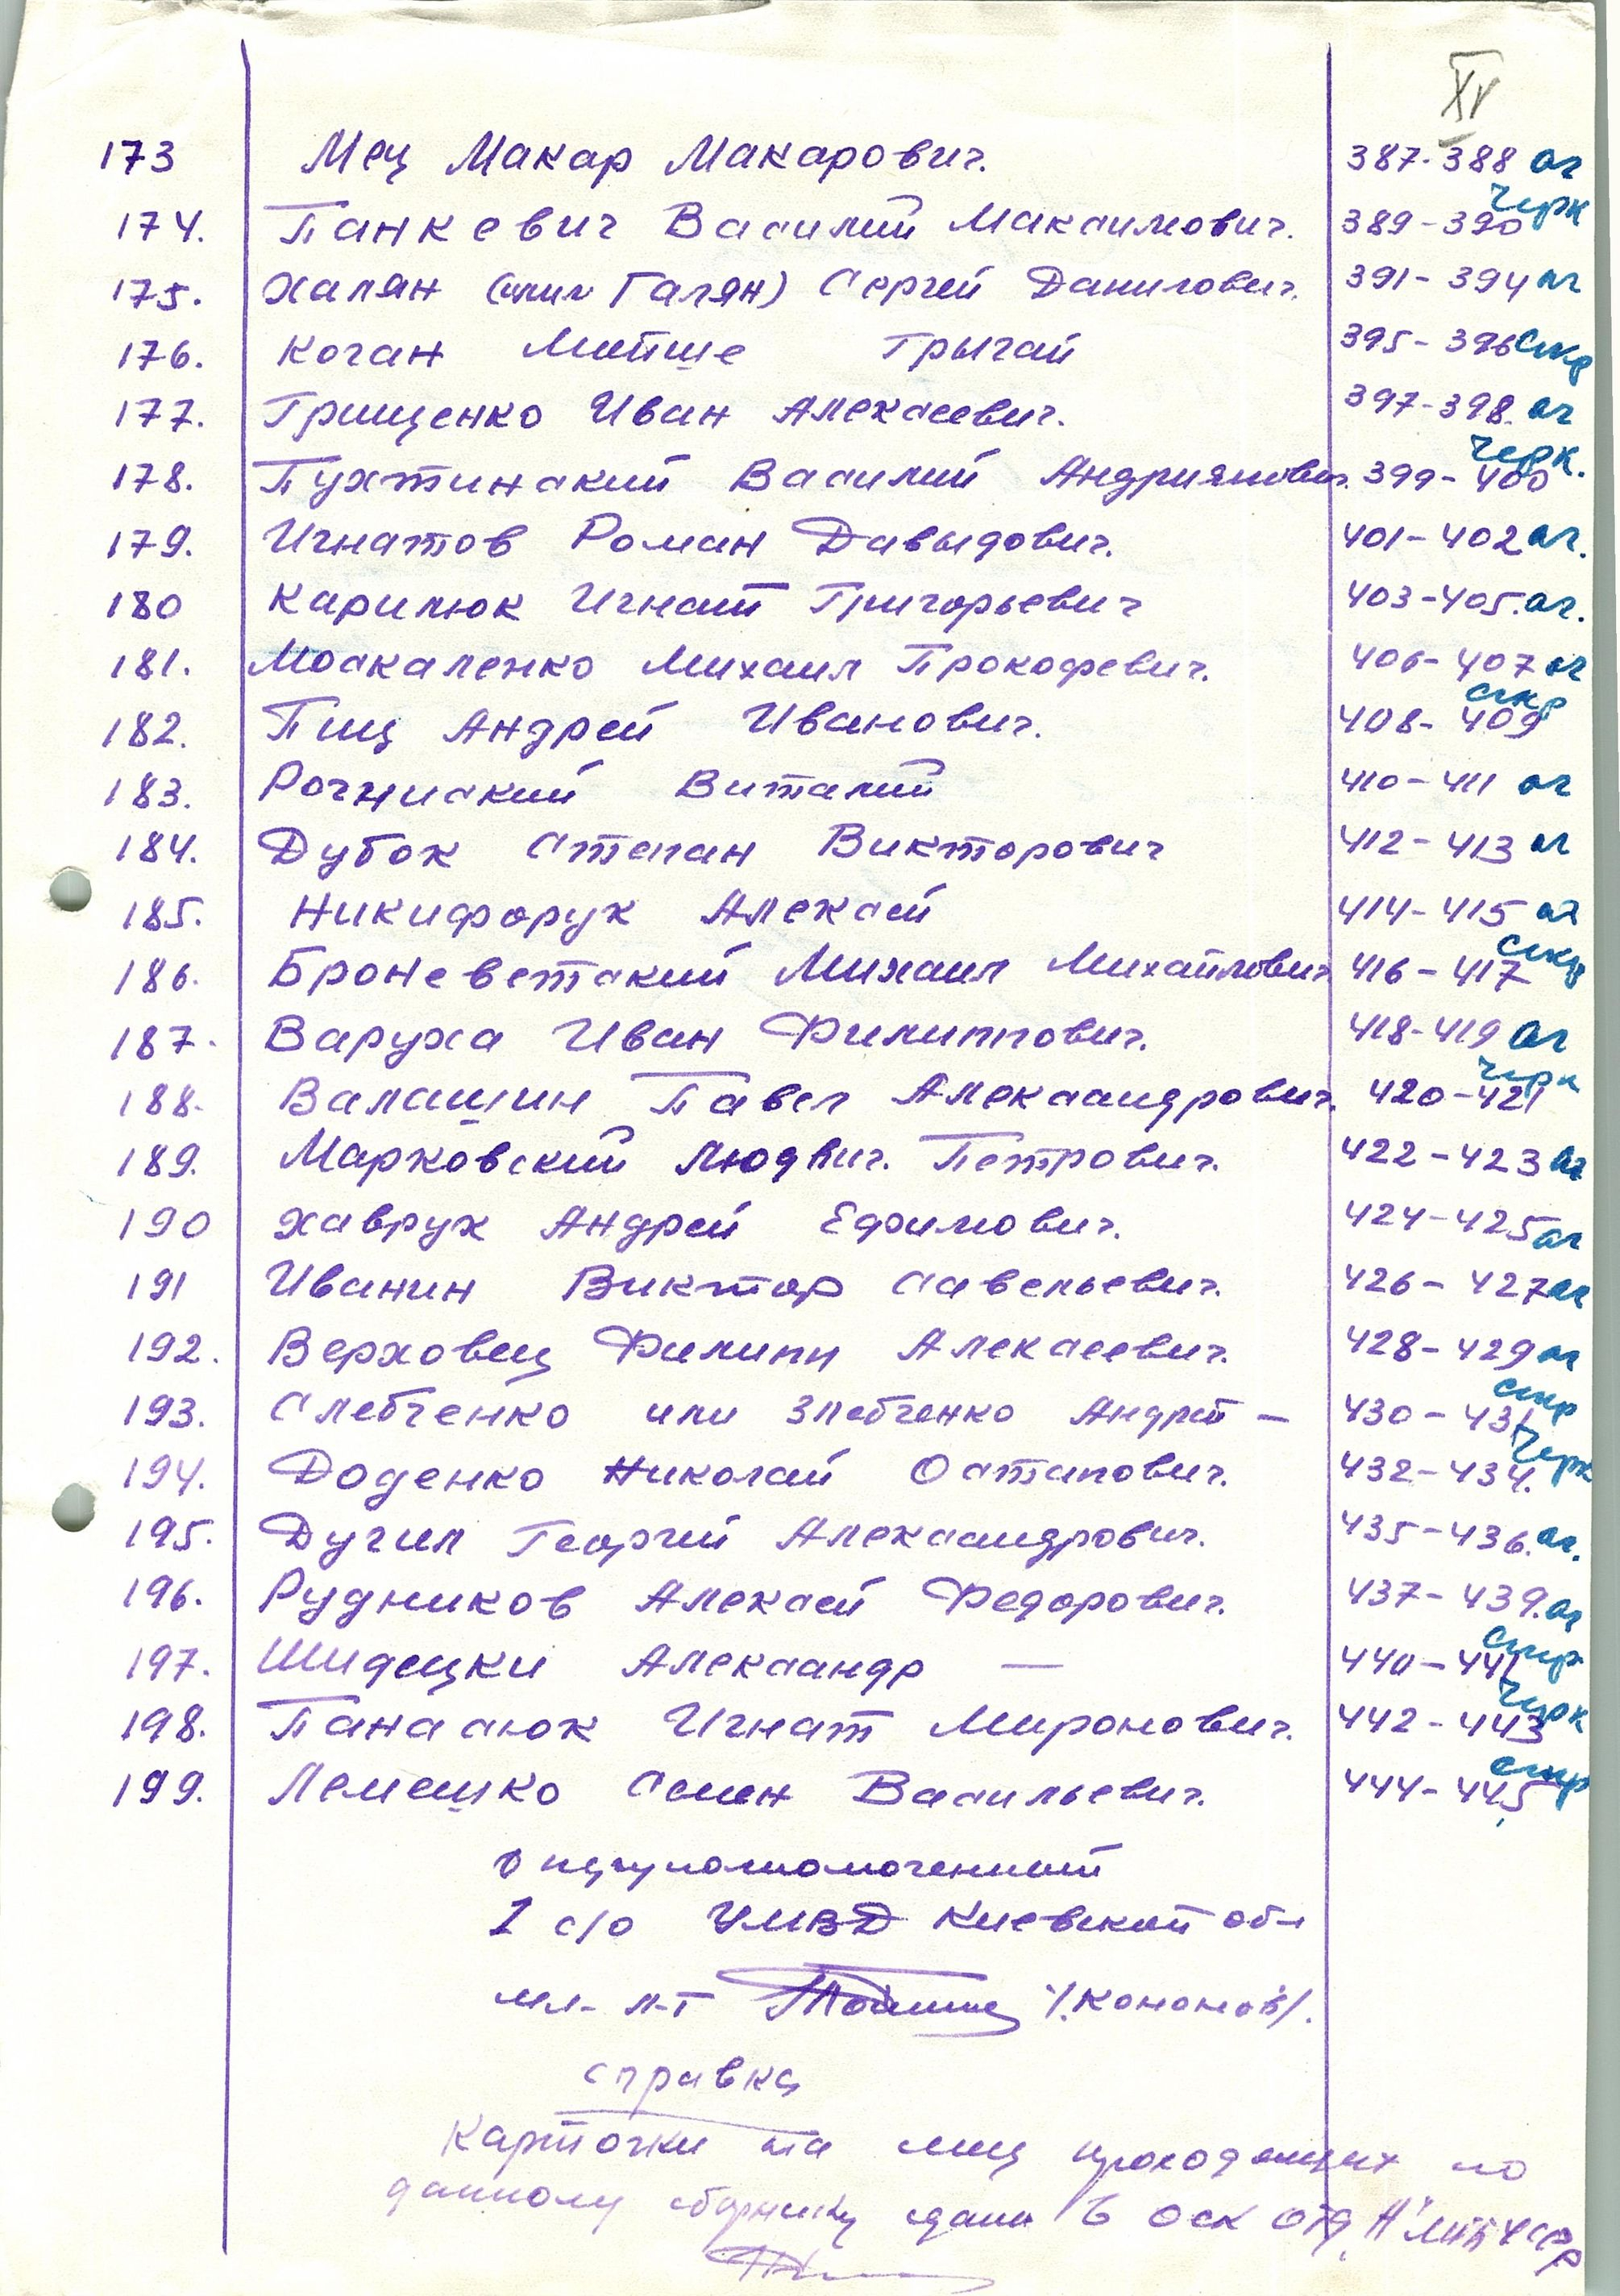 XV
173 Мец Макар Макарович. 387-388 ог
174. Панкевич Василий Максимович. 389-390 черк
175. Халян (или Галян) Сергей Данилович. 391-394 ог
176. Коган Мойше Грычай 395-396 скр
177. Грищенко Иван Алексеевич. 397-398. ог
178. Пухтинский Василий Андриянович. 399-400 черк.
179. Игнатов Роман Давыдович. 401-402 ог.
180 Карилюк Игнат Григорьевич 403-405. ог.
181. Москаленко Михаил Прокофевич. 406-407 ог
182. Пищ Андрей Иванович. 408-409 скр
183. Рогниский Виталий 410-411 ог
184. Дубок Степан Викторович 412-413 ог
185. Никифорук Алексей 414-415 ог
186. Броневетский Михаил Михайлович 416-417 скр
187. Варуха Иван Филиппович. 418-419 ог
188. Валашин Павел Александрович. 420-421 черк
189. Марковский Людвиг. Петрович. 422-423 ог
190 Хаврук Андрей Ефимович. 424-425 ог
191 Иванин Виктор Савельевич. 426-427 ог
192. Верховец Филипп Алексеевич. 428-429 ог
193. Слебченко или Злебченко Андрей — 430-431 скр
194. Доденко Николай Остапович. 432-434. черк
195. Дугил Георгий Александрович. 435-436. ог.
196. Рудников Алексей Федорович. 437-439. ог
197. Шидецки Александр — 440-441 скр
198. Панасюк Игнат Миронович. 442-443 черк
199. Лемешко Семен Васильевич. 444-445 скр
Оперуполномоченный
1 с/о УМВД Киевской обл
мл. л-т /.Кононов/.
справка
Карточки на лиц проходящих по
данному сборнику сданы в оск отд. "А" МВД УССР